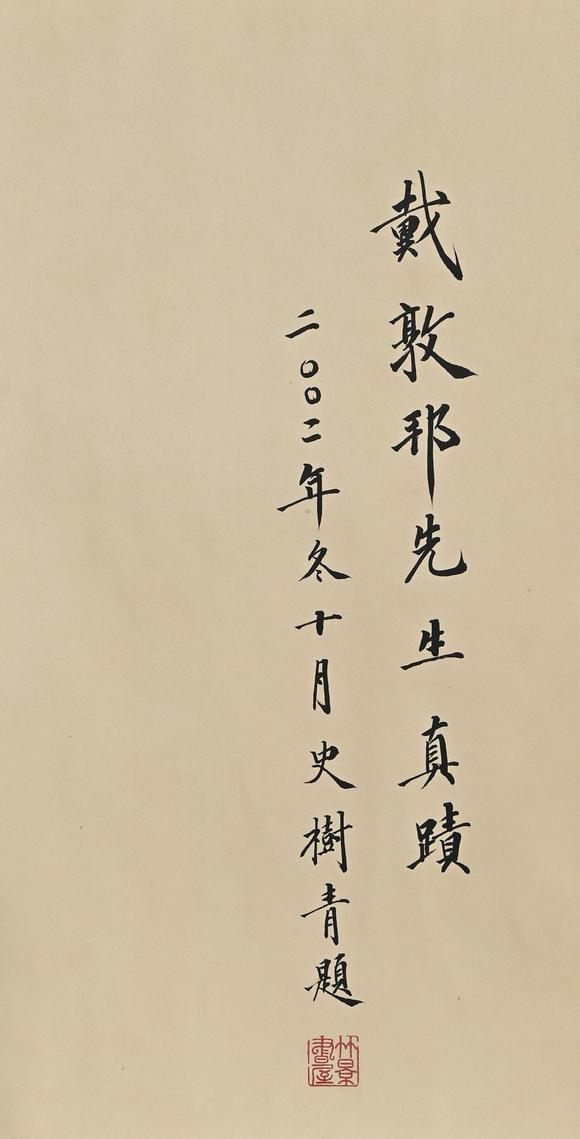 戴敦邦先生真蹟
二〇〇二年冬十月史樹青題
竹景書屋